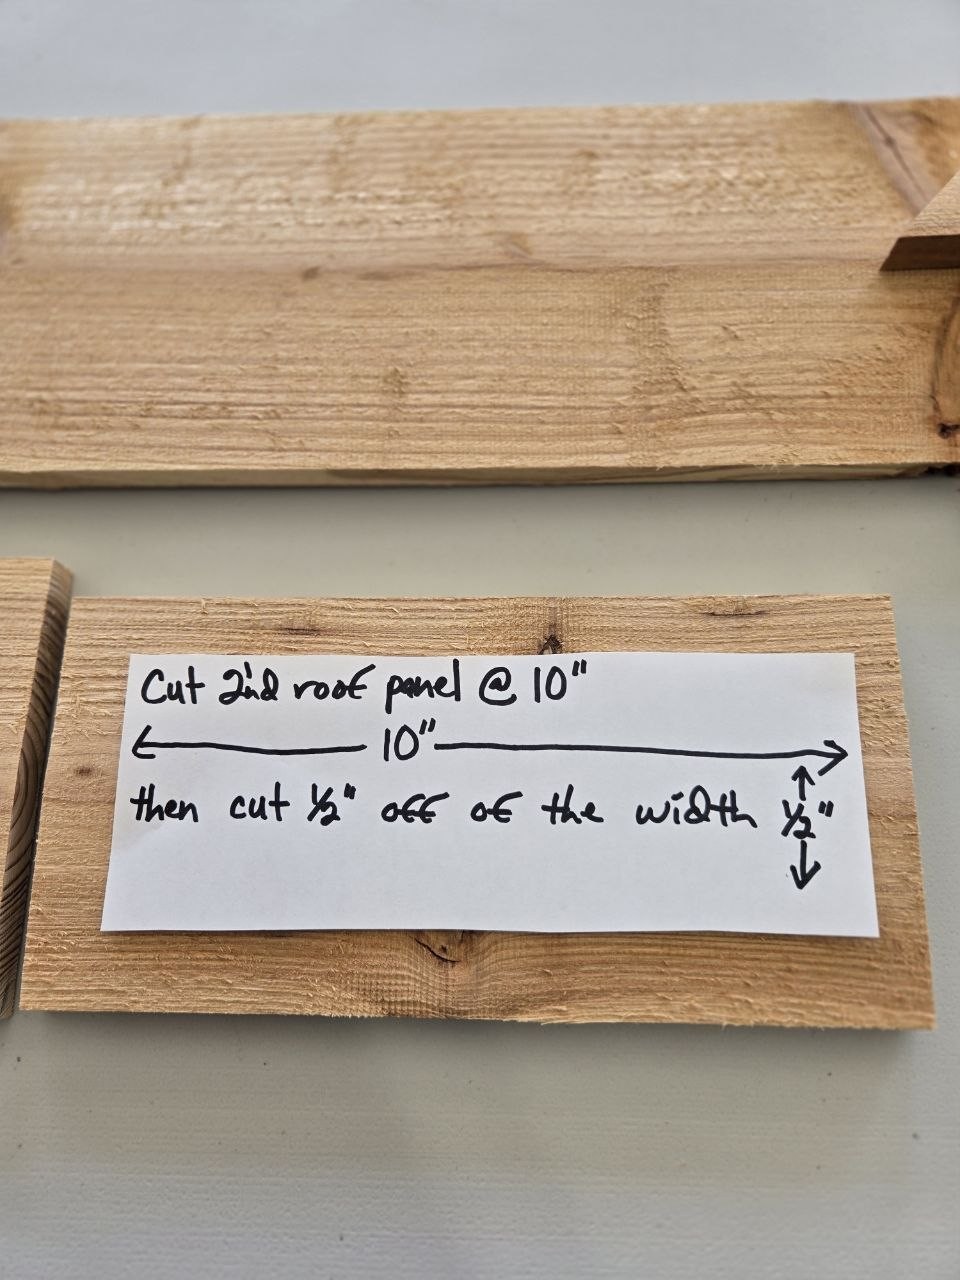 Cut 2nd roof panel @ 10"
10"
then cut ½" off of the width ½"